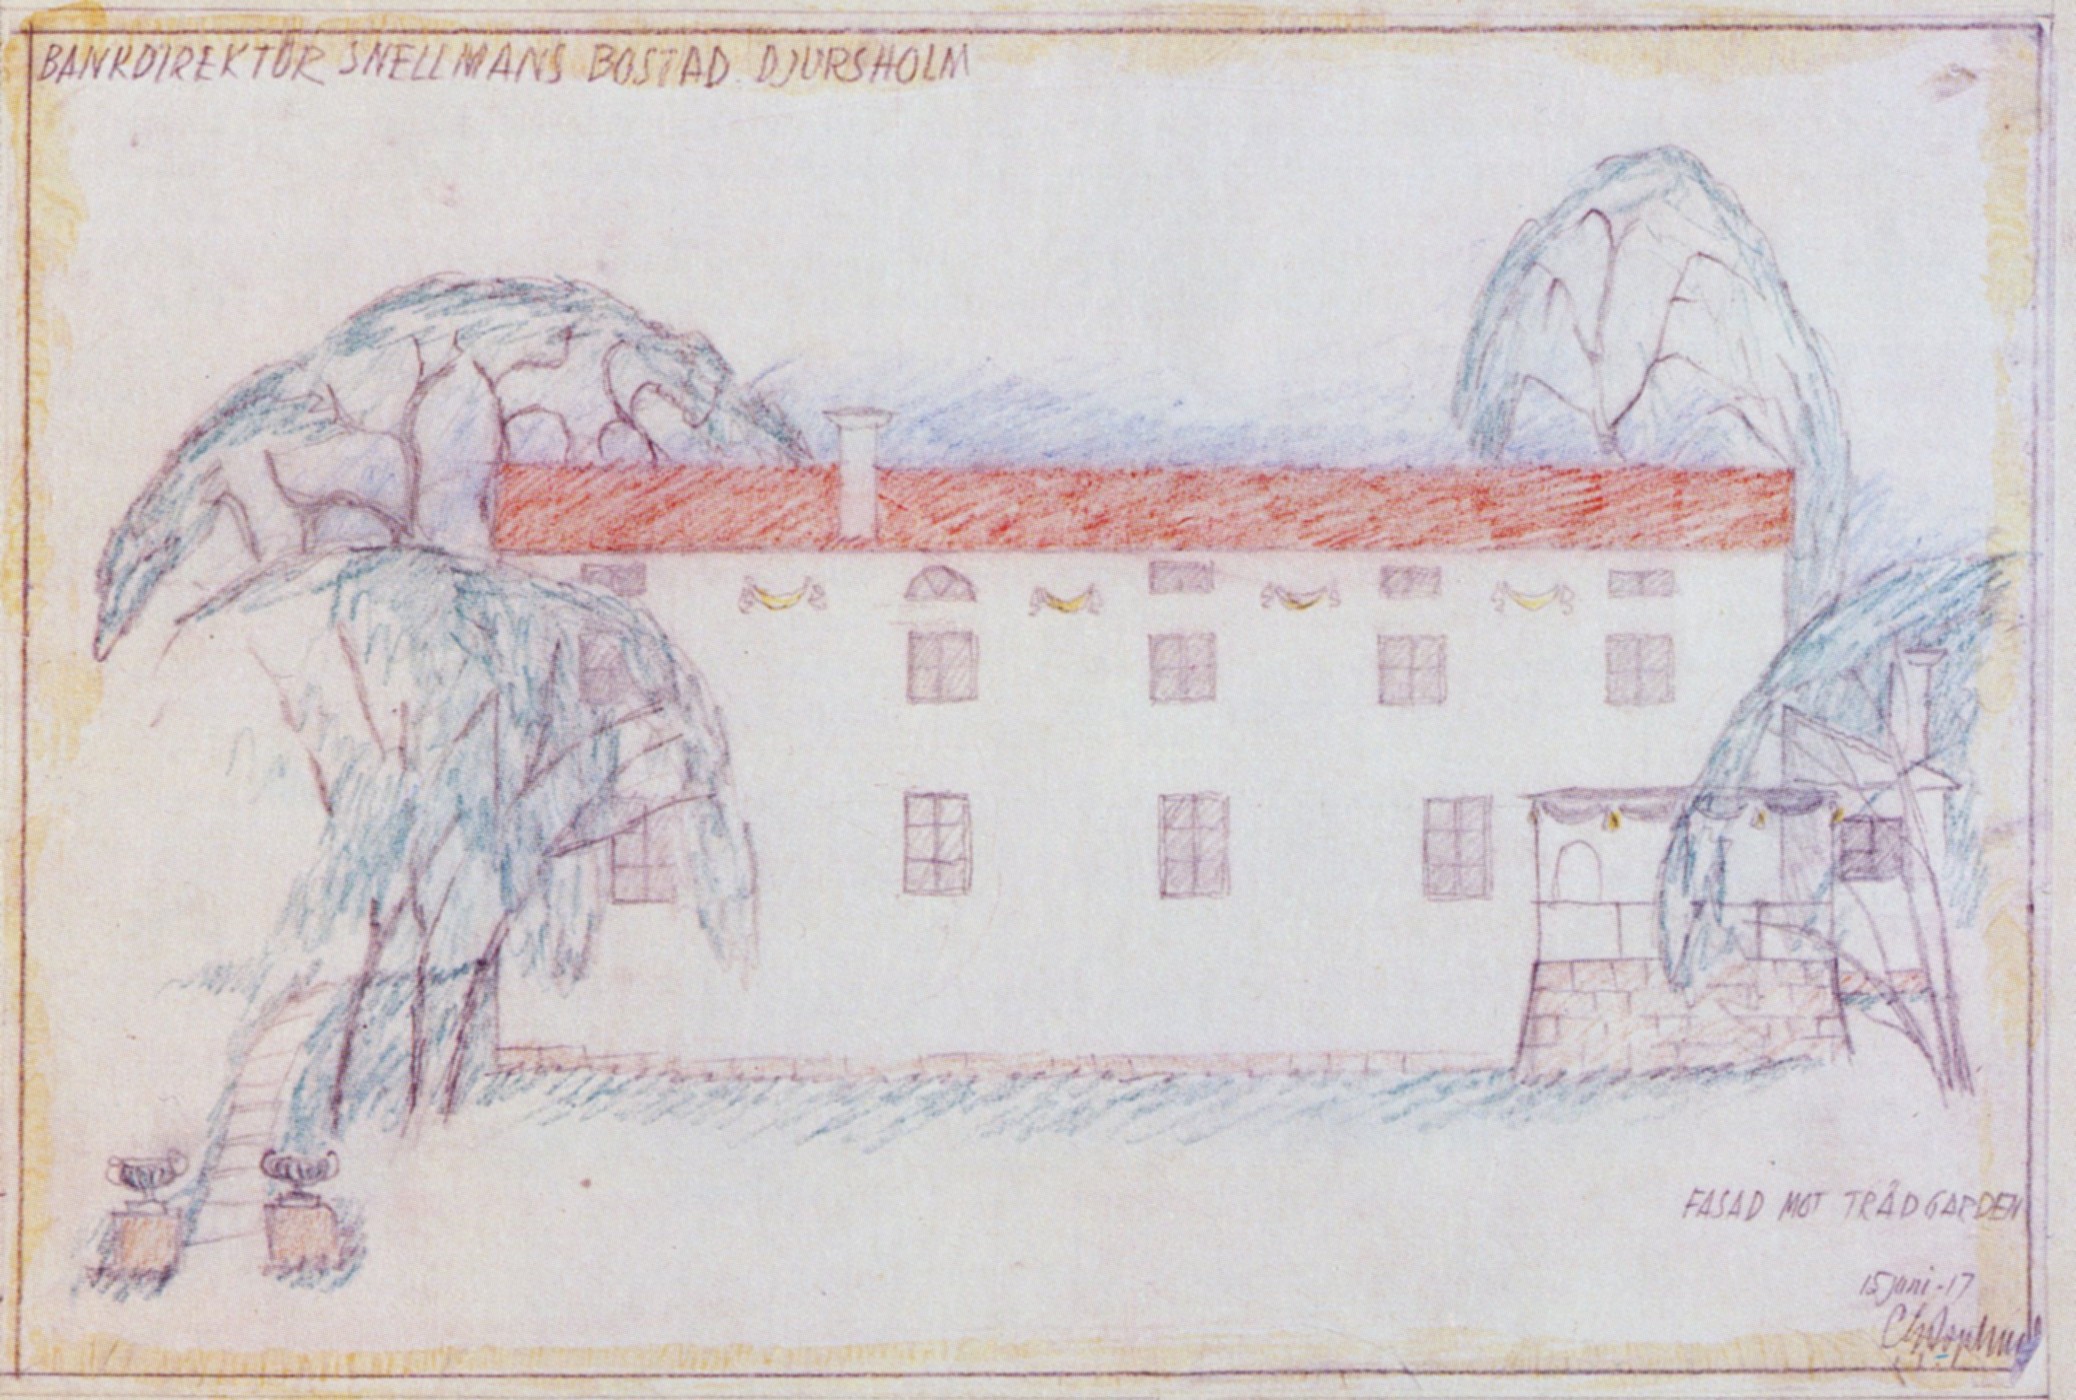 BANKDIREKTÖR SNELLMANS BOSTAD. DJURSHOLM
FASAD MOT TRÄDGARDEN
15 juni -17